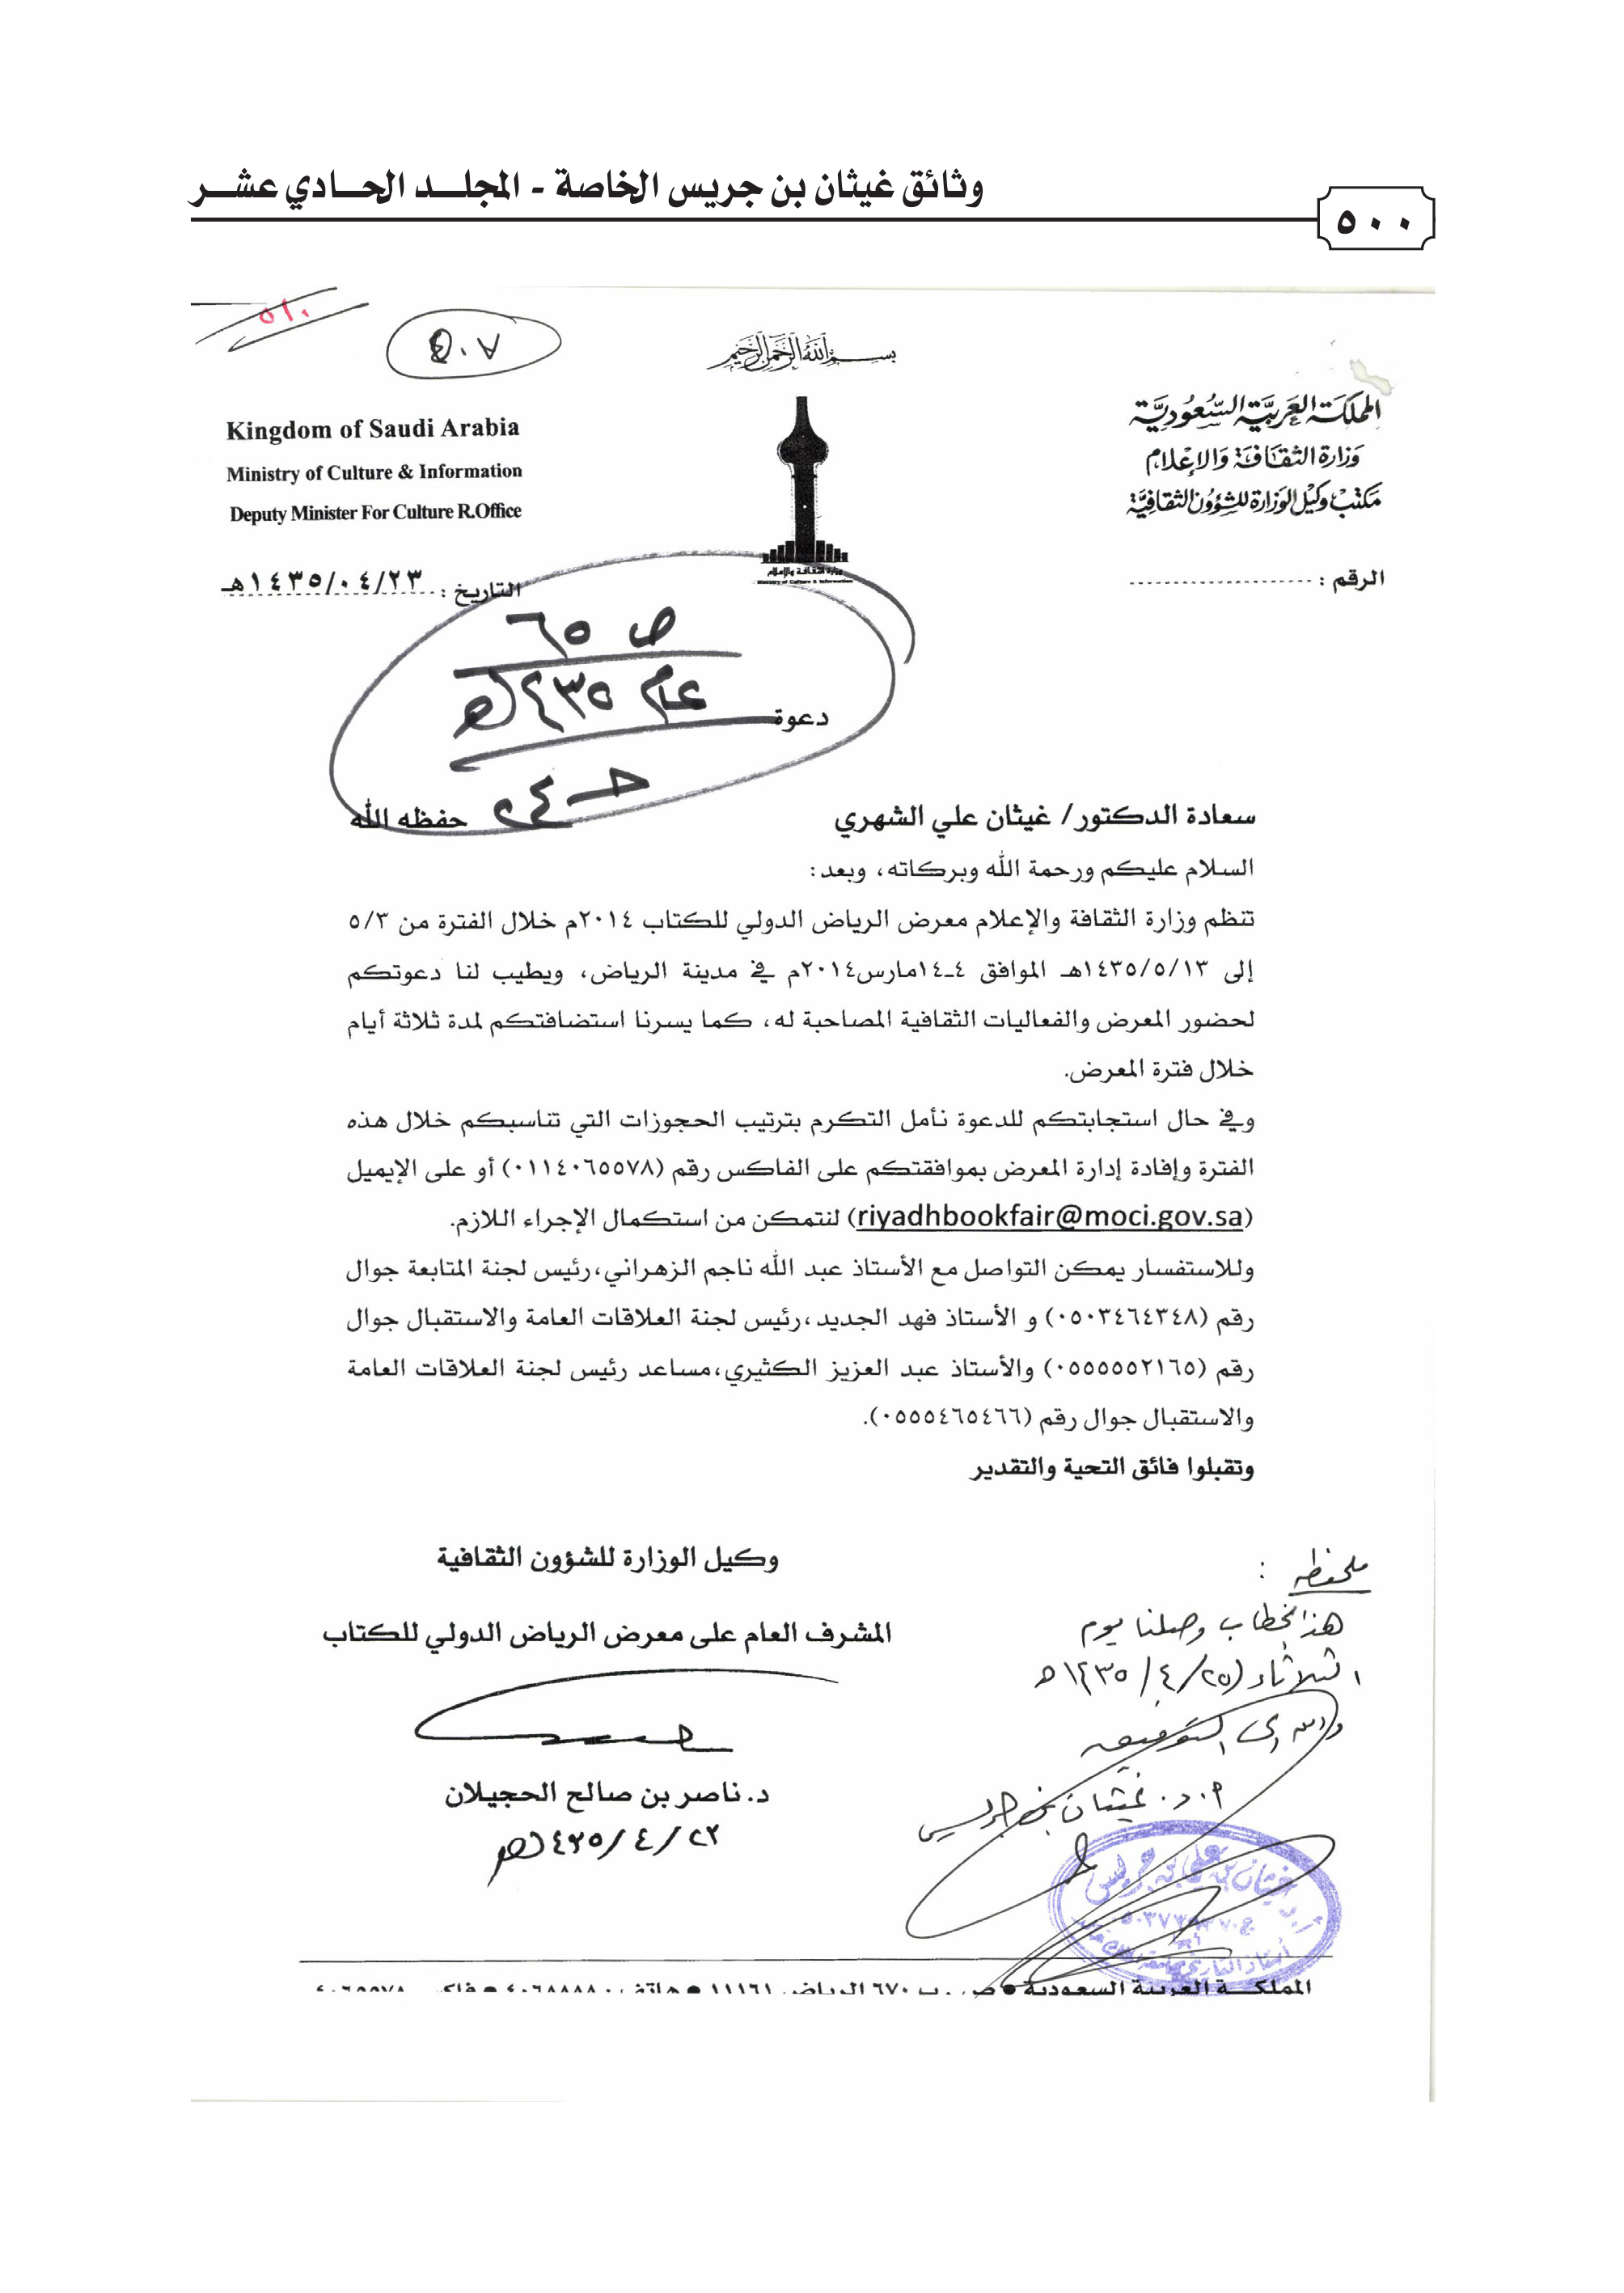 وثائق غيثان بن جريس الخاصة - المجلـــد الحـــادي عشـــر
٥٠٠
٥١٠
٥٠٧
بسم الله الرحمن الرحيم
المملكة العربية السعودية
وزارة الثقافة والإعلام
مكتب وكيل الوزارة للشؤون الثقافية
Kingdom of Saudi Arabia
Ministry of Culture & Information
Deputy Minister For Culture R.Office
وزارة الثقافة والإعلام
Ministry of Culture & Information
الرقم :
التاريخ : ١٤٣٥/٠٤/٢٣هـ
ص ٦٥
عام ١٤٣٥هـ
دعوة
سعادة الدكتور/ غيثان علي الشهري حفظه الله
السلام عليكم ورحمة الله وبركاته، وبعد:
تنظم وزارة الثقافة والإعلام معرض الرياض الدولي للكتاب ٢٠١٤م خلال الفترة من ٥/٣
إلى ١٤٣٥/٥/١٣هـ الموافق ٤-١٤مارس٢٠١٤م في مدينة الرياض، ويطيب لنا دعوتكم
لحضور المعرض والفعاليات الثقافية المصاحبة له، كما يسرنا استضافتكم لمدة ثلاثة أيام
خلال فترة المعرض.
وفي حال استجابتكم للدعوة نأمل التكرم بترتيب الحجوزات التي تناسبكم خلال هذه
الفترة وإفادة إدارة المعرض بموافقتكم على الفاكس رقم (٠١١٤٠٦٥٥٧٨) أو على الإيميل
(riyadhbookfair@moci.gov.sa) لنتمكن من استكمال الإجراء اللازم.
وللاستفسار يمكن التواصل مع الأستاذ عبد الله ناجم الزهراني،رئيس لجنة المتابعة جوال
رقم (٠٥٠٣٤٦٤٣٤٨) و الأستاذ فهد الجديد،رئيس لجنة العلاقات العامة والاستقبال جوال
رقم (٠٥٥٥٥٥٢١٦٥) والأستاذ عبد العزيز الكثيري،مساعد رئيس لجنة العلاقات العامة
والاستقبال جوال رقم (٠٥٥٥٤٦٥٤٦٦).
وتقبلوا فائق التحية والتقدير
وكيل الوزارة للشؤون الثقافية
المشرف العام على معرض الرياض الدولي للكتاب
د. ناصر بن صالح الحجيلان
٢٣/٤/١٤٣٥هـ
ملحوظة :
هذا الخطاب وصلنا يوم
الثلاثاء (٢٥/٤/١٤٣٥هـ
والله ولي التوفيق
أ. د. غيثان بن جريس
غيثان بن علي بن جريس
المملكـــة العربية السعودية ● ص . ب ٦٧٠ الرياض ١١١٦١ ● هاتف ٤٠٦٨٨٨٨٠ ● فاكس ٤٠٦٥٥٧٨